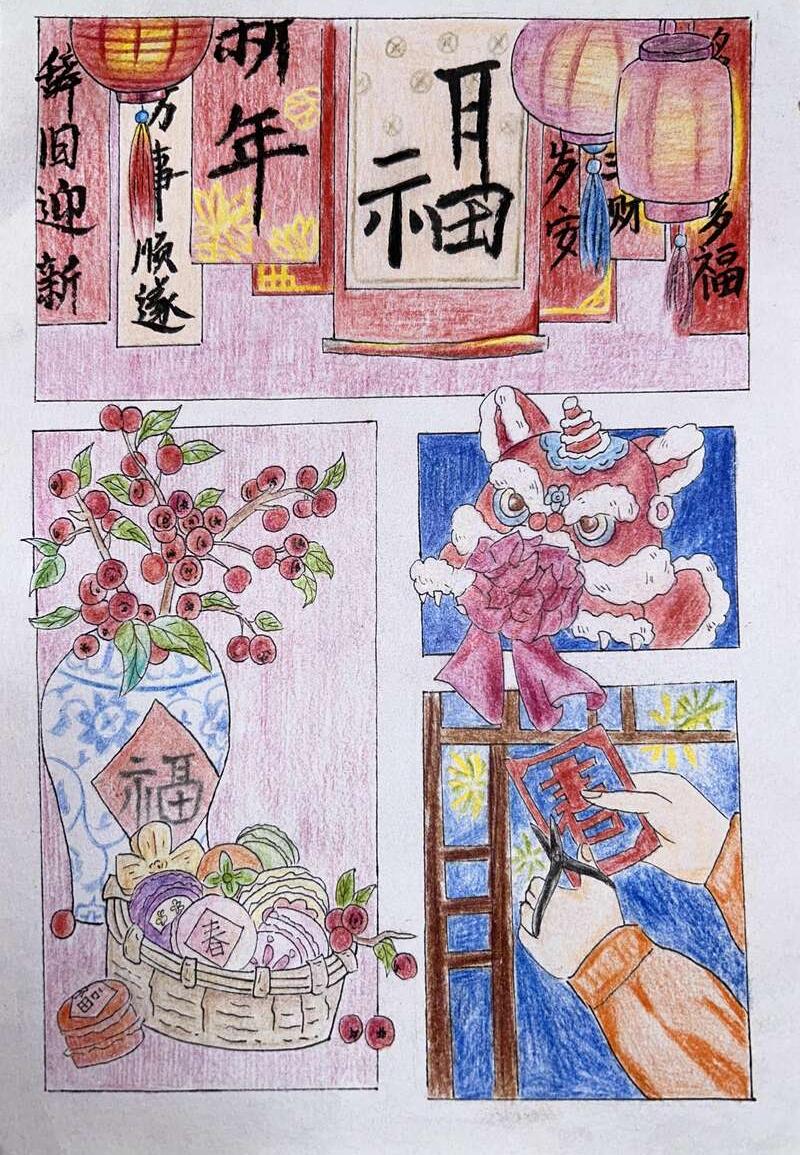 辞旧迎新
万事顺遂
新年
福
岁安
财
多福
福
春
春